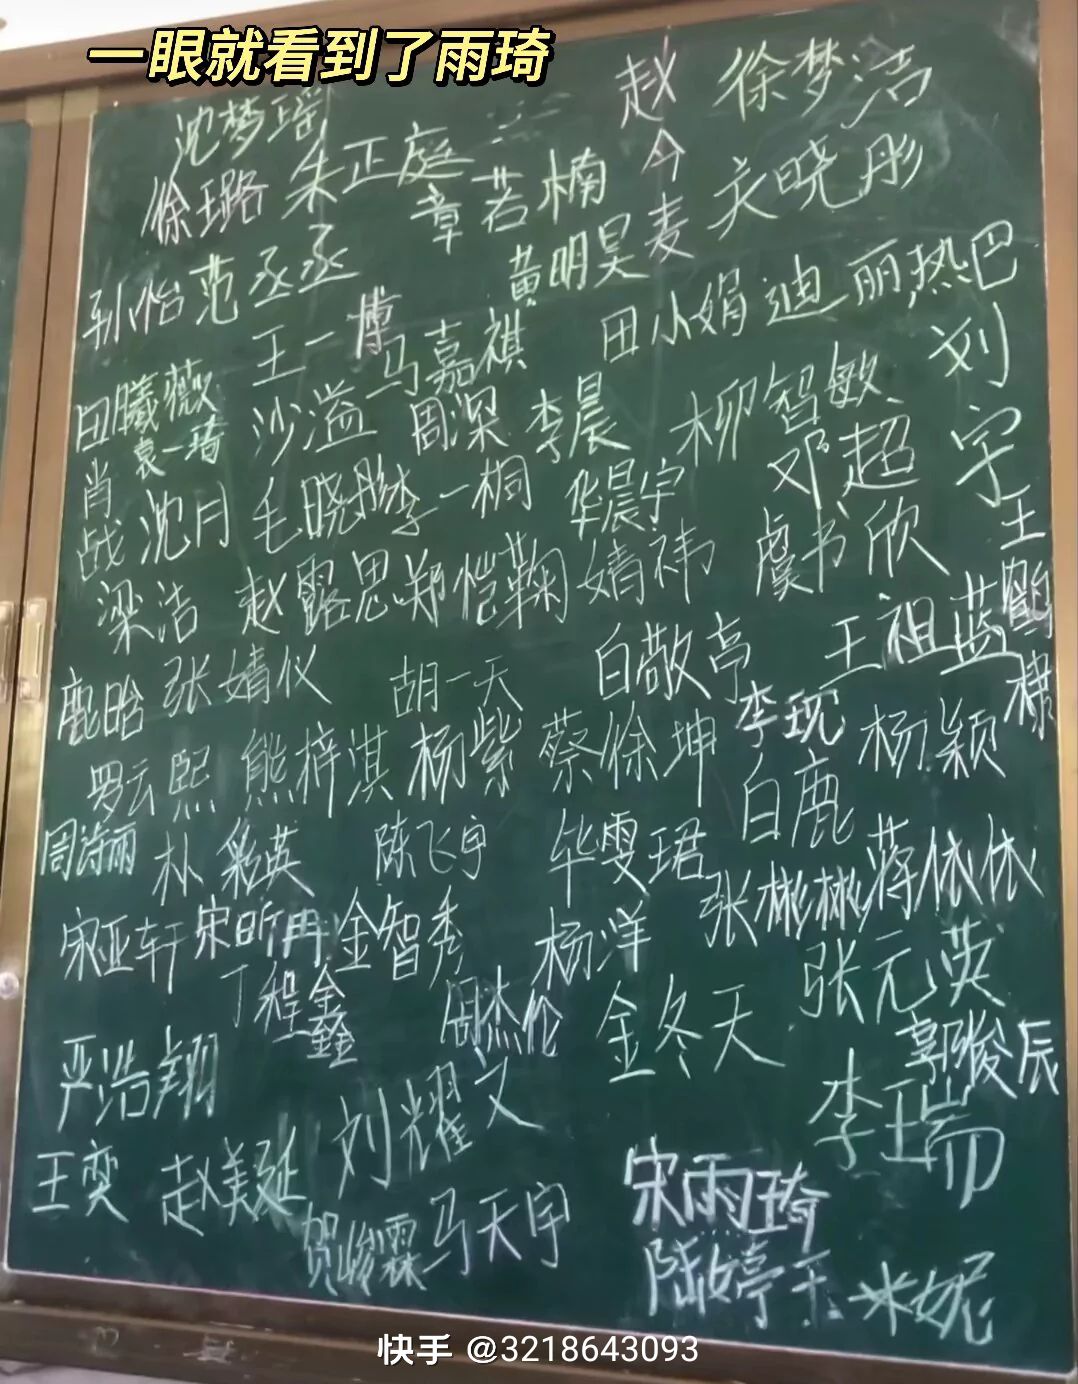 一眼就看到了雨琦
沈梦瑶
赵今麦
徐梦洁
徐璐
朱正庭
章若楠
关晓彤
孙怡
范丞丞
黄明昊
王一博
马嘉祺
田小娟
迪丽热巴
田曦薇
袁一琦
沙溢
周深
李晨
柳智敏
刘宇
肖战
沈月
毛晓彤
李一桐
华晨宇
邓超
王鹤棣
梁洁
赵露思
郑恺
鞠婧祎
虞书欣
鹿晗
张婧仪
胡一天
白敬亭
王祖蓝
罗云熙
熊梓淇
杨紫
蔡徐坤
李现
杨颖
周诗雨
朴彩英
陈飞宇
毕雯珺
白鹿
宋亚轩
宋昕冉
金智秀
杨洋
张彬彬
蒋依依
丁程鑫
鑫
周杰伦
金冬天
张元英
郭俊辰
严浩翔
刘耀文
李瑞
王奕
赵美延
贺峻霖
马天宇
宋雨琦
陆婷
王
米妮
快手 @3218643093